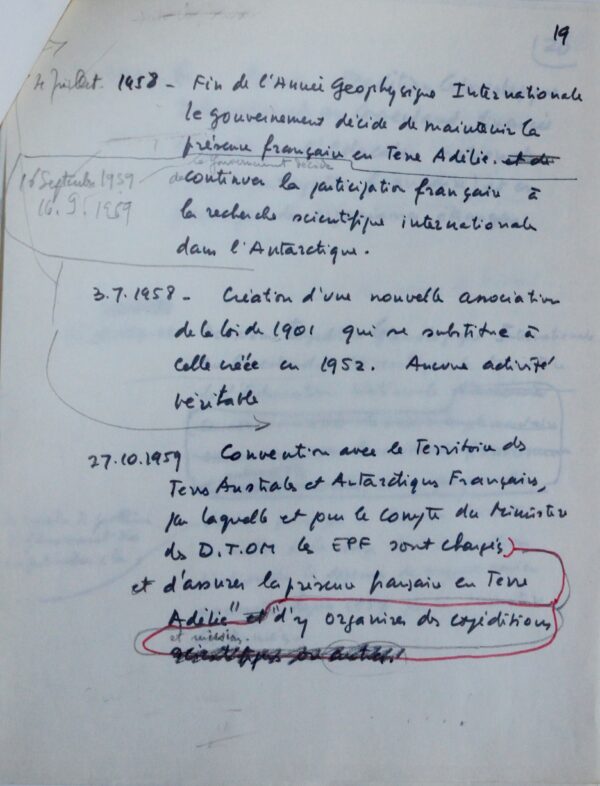 19
Juillet 1958 - Fin de l'Année Geophysique Internationale
le gouvernement décide de maintenir la
présence française en Terre Adélie. et de
le gouvernement décide
16 Septembre 1959
de continuer la participation française à
16.9.1959
la recherche scientifique internationale
dans l'Antarctique.
3.7.1958 - Création d'une nouvelle association
de la loi de 1901 qui se substitue à
celle créée en 1952. Aucune activité
véritable
27.10.1959 Convention avec le Territoire des
Terres Australes et Antarctiques Françaises,
par laquelle et pour le compte du Ministère
des D.TOM les EPF sont chargés
et d'assurer la présence française en Terre
Adélie" et "d'y organiser des expéditions
et missions.